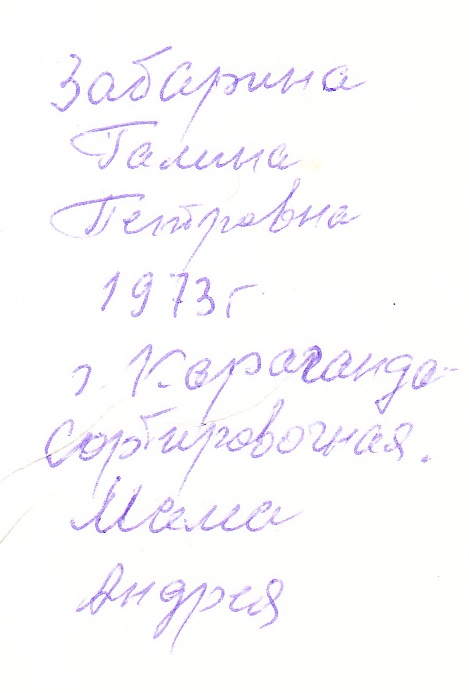 Забарина
Галина
Петровна
1973г
г. Караганда-
Сортировочная.
Мама
Андрея